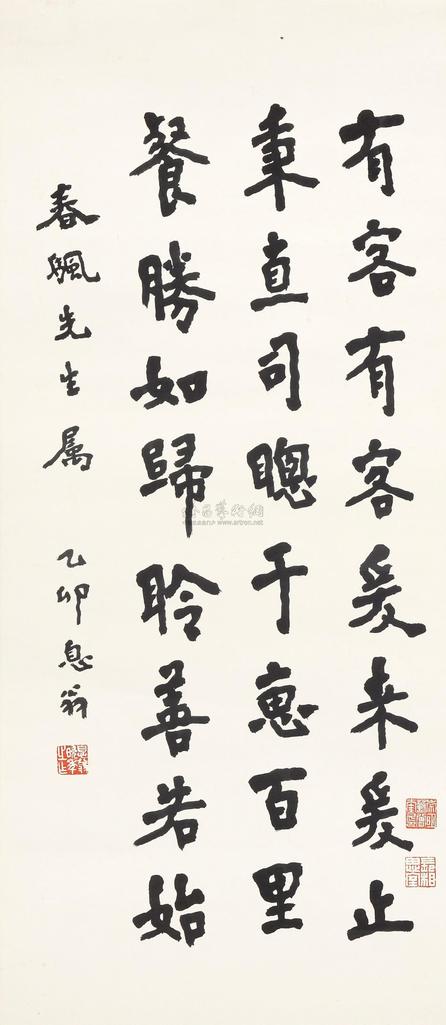 有客有客爰来爰止
秉直司聰于惠百里
餐勝如歸聆善若始
春颿先生属
乙卯息翁
www.artron.net